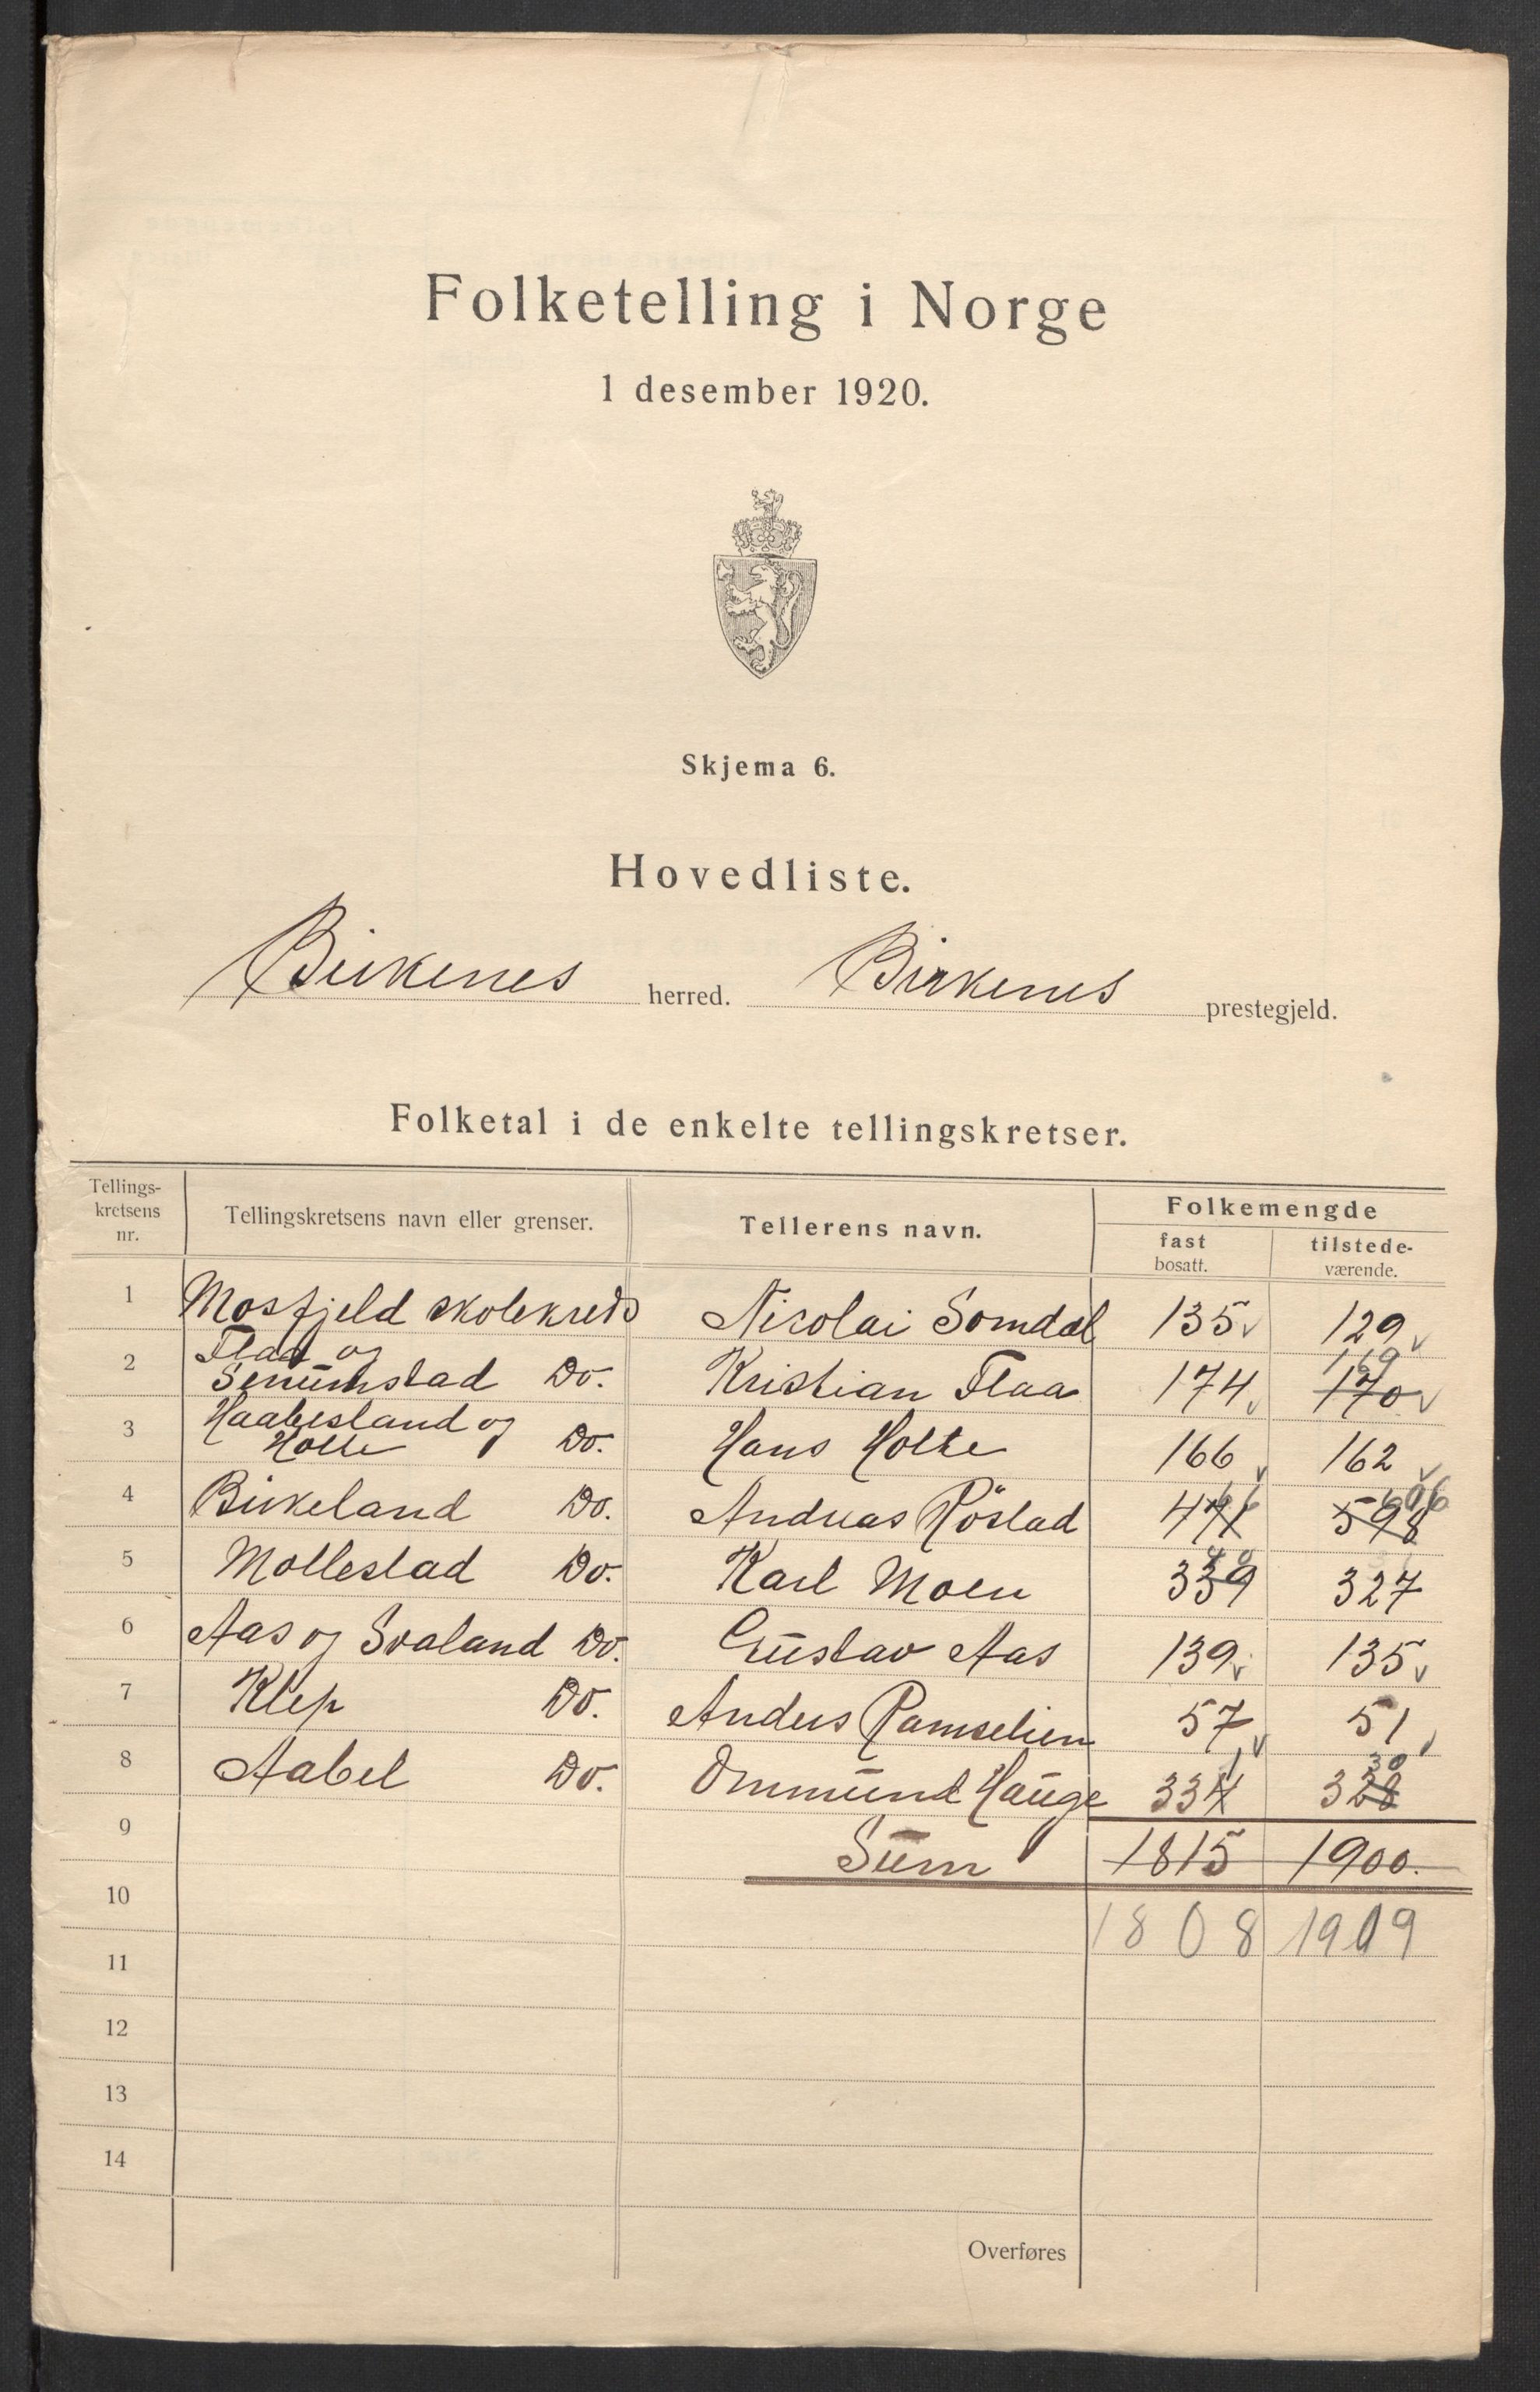 Folketelling i Norge
1 desember 1920.
Skjema 6.
Hovedliste.
Birkenes herred. Birkenes prestegjeld.
Folketal i de enkelte tellingskretser.
Tellings-
kretsens
nr.
Tellingskretsens navn eller grenser.
Tellerens navn.
Folkemengde
fast
bosatt.
tilstede-
værende.
1 Mosfjeld skolekreds Nikolai Somdal 135 v 129 v
Flaa og 169
2 Senumstad Do. Kristian Flaa 174 v 170 v
Haabesland og
3 Holte Do. Hans Holte 166 v 162 v
66 606
4 Birkeland Do. Andreas Röstad 471 598
40
5 Mollestad Do. Karl Moen 339 327
6 Aas og Svaland Do. Gustav Aas 139 v 135 v
7 Klep Do. Anders Ramselien 57 v 51 v
1 30
8 Aabel Do. Ommund Hauge 334 328
9 Sum 1815 1900.
10 1808 1909
11
12
13
14
Overføres